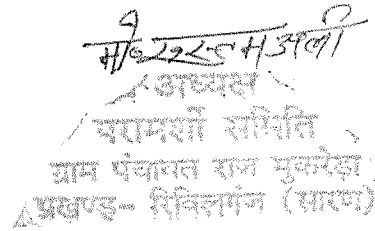 मो० रुस्तम अली
अध्यक्ष
परामर्शी समिति
ग्राम पंचायत राज मुकरेड़ा
प्रखण्ड- रिविलगंज (सारण)